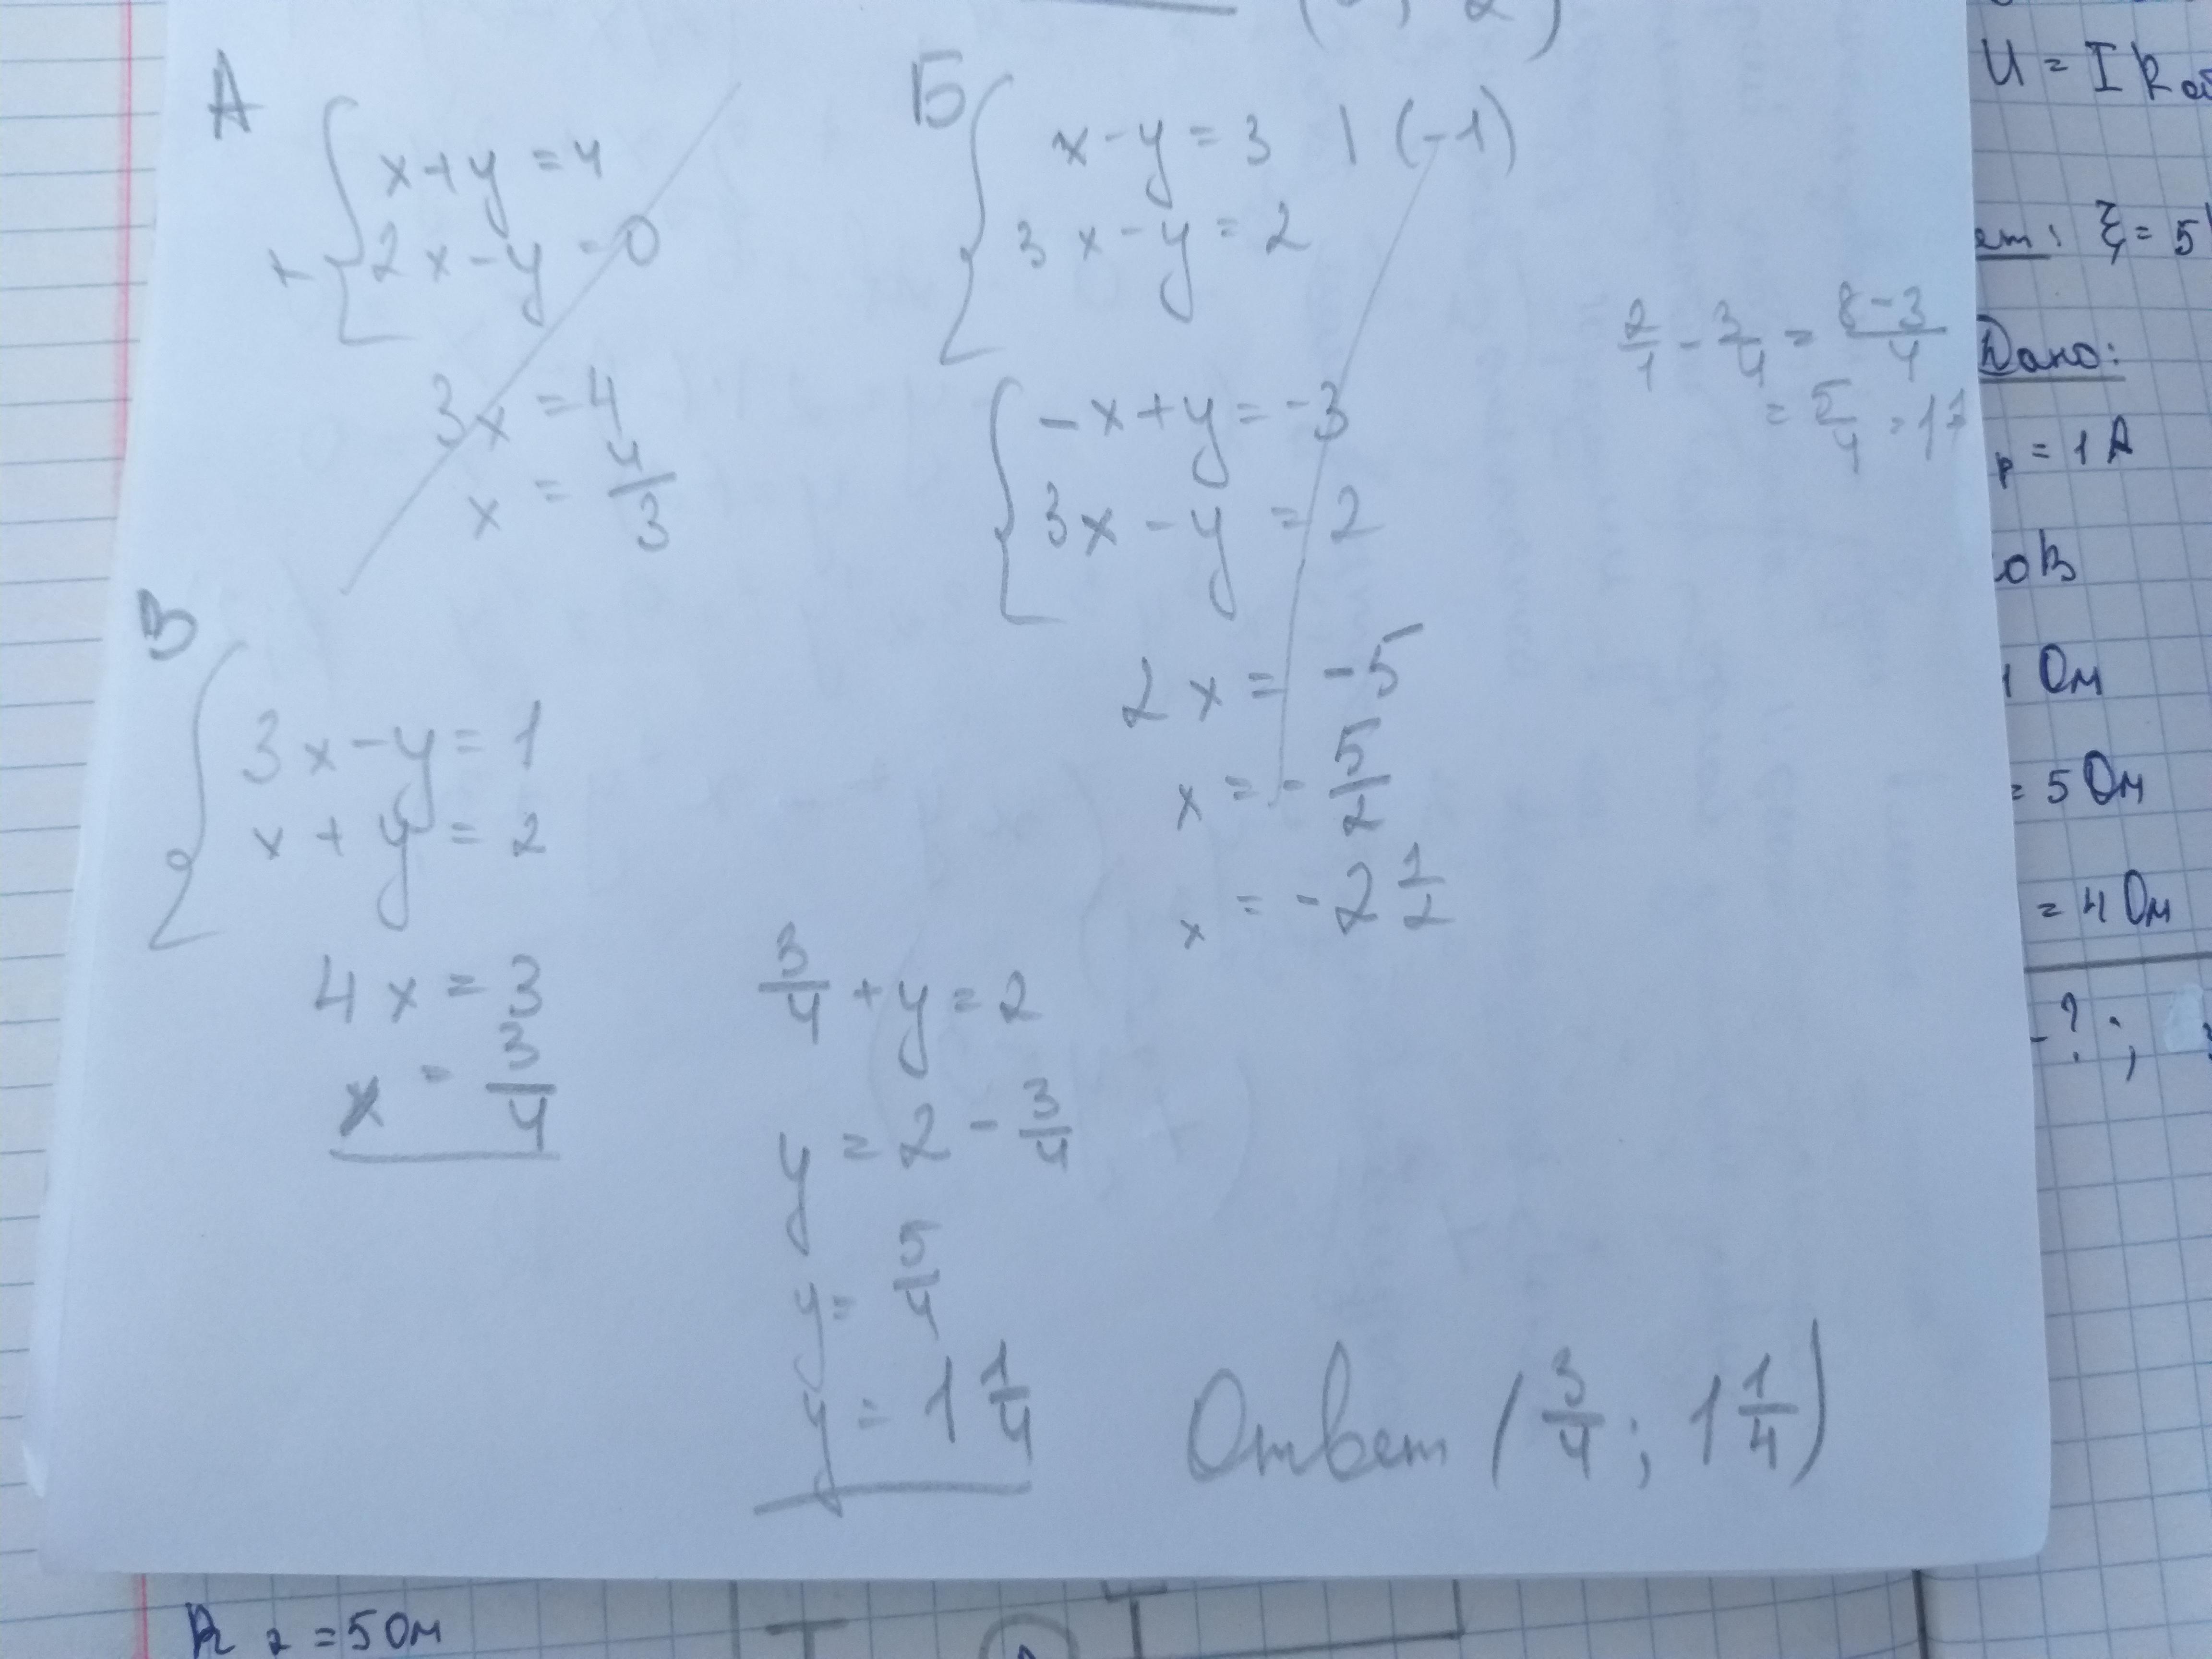 А
x+y=4
+ 2x-y=0
3x=4
x=4/3
Б
x-y=3 | (-1)
3x-y=2
-x+y=-3
3x-y=2
2x=-5
x=-5/2
x=-2 1/2
2/1-3/4=8-3/4
=5/4=1
В
3x-y=1
x+y=2
4x=3
x=3/4
3/4+y=2
y=2-3/4
y=5/4
y=1 1/4
Ответ (3/4; 1 1/4)
U=IR
ξ=5
Дано:
=1А
1 Ом
=5 Ом
=4 Ом
-?;
R2=5 Ом